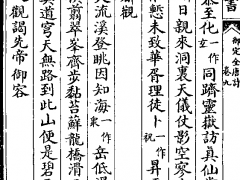 書
御定全唐詩
卷九
至化一作女同躋靈嶽訪真仙當
日親來洞裏天儀仗影空寥
慚未致華胥理徒卜一作祝昇
觀
流溪登眺因知海一作衆岳低
剪翠峯齊步黏苔蘚龍橋滑
道宮天無路到此山便是碧
觀謁先帝御容